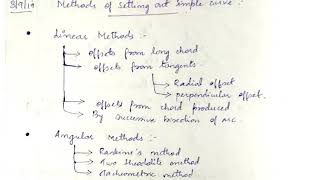 3/9/19 Methods of setting out simple curve :-
Linear Methods :-
Offsets from long chord
offsets from tangents
Radial offset
perpendicular offset.
offsets from chord produced
By successive bisection of arc.
Angular Methods :-
Rankine's method
Two theodolite method
Tacheometric method